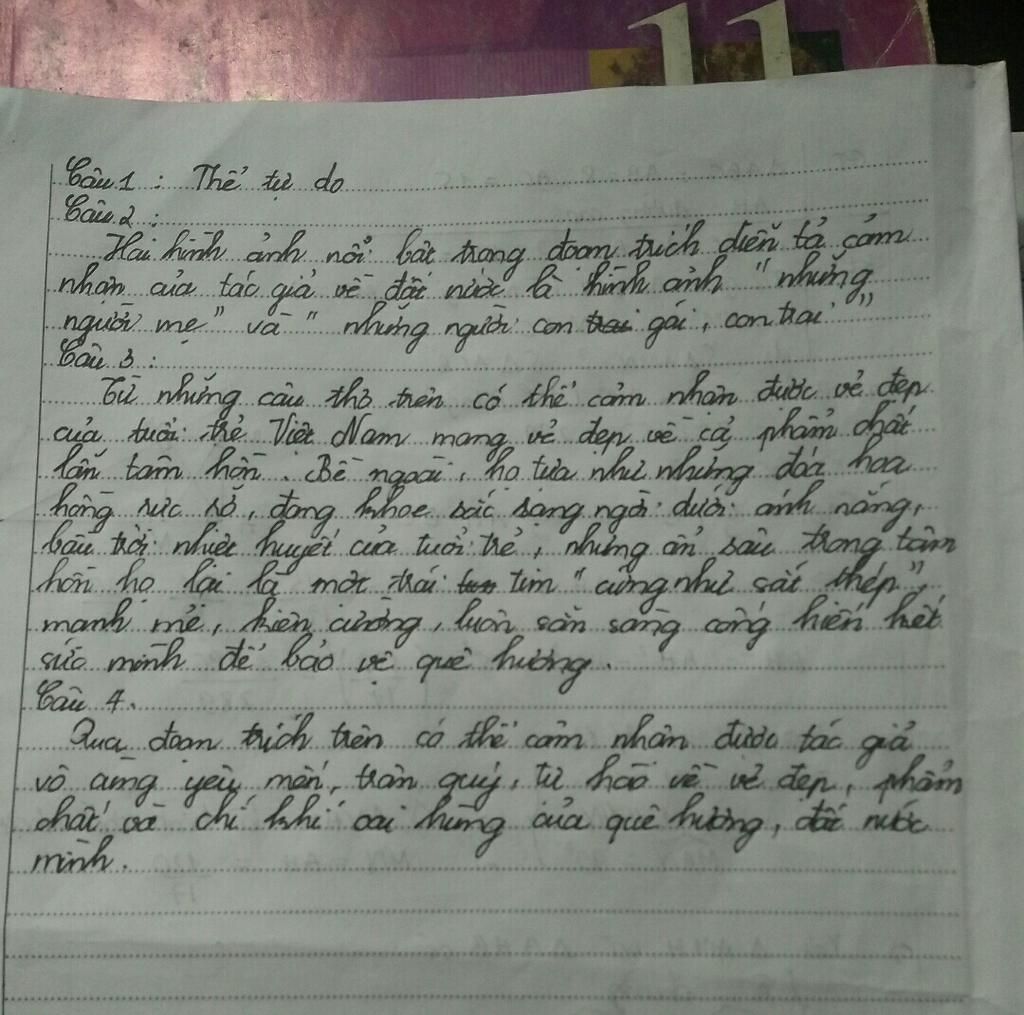 11
Câu 1 : Thể tự do
Câu 2 :
Hai hình ảnh nổi bật trong đoạn trích diễn tả cảm
nhận của tác giả về đất nước là hình ảnh " những
người mẹ" và " những người con trai gái, con trai "
Câu 3 :
Từ những câu thơ trên có thể cảm nhận được vẻ đẹp
của tuổi trẻ Việt Nam mang vẻ đẹp về cả phẩm chất
lẫn tâm hồn. Bề ngoài, họ tựa như những đóa hoa
hồng rực rỡ, đang khoe sắc sáng ngời dưới ánh nắng,
bầu trời nhiệt huyết của tuổi trẻ, nhưng ẩn sâu trong tâm
hồn họ lại là một trái tim " cứng như sắt thép",
mạnh mẽ, kiên cường, luôn sẵn sàng cống hiến hết
sức mình để bảo vệ quê hương.
Câu 4.
Qua đoạn trích trên có thể cảm nhận được tác giả
vô cùng yêu mến, trân quý, tự hào về vẻ đẹp, phẩm
chất và chí khí oai hùng của quê hương, đất nước
mình.